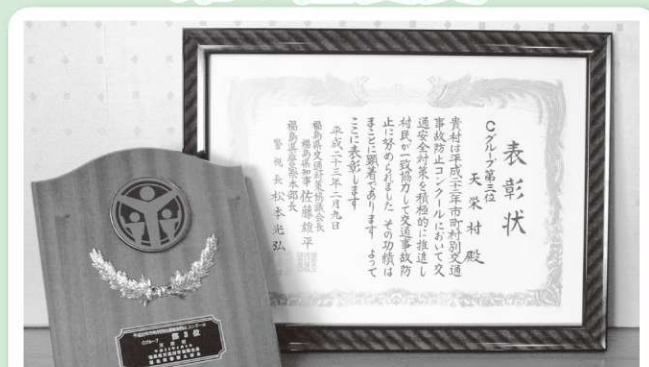 表彰状
Cグループ第三位
天栄村殿
貴村は平成二十二年市町村別交通
事故防止コンクールにおいて交
通安全対策を積極的に推進し
村民が一致協力して交通事故防
止に努められました その功績は
まことに顕著であります よって
ここに表彰します
平成二十三年二月九日
福島県交通対策協議会長
福島県知事 佐藤雄平
福島県警察本部長
警視長 松本光弘
Cグループ 第3位